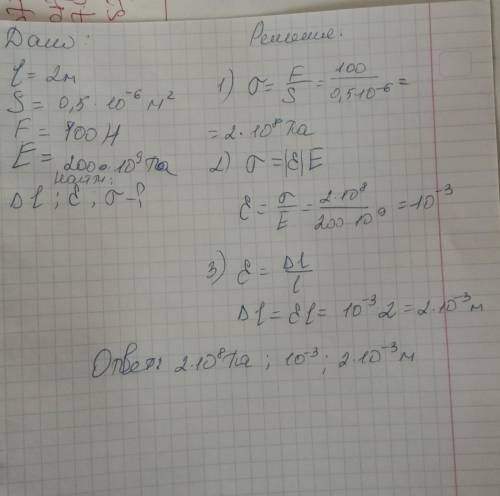 Дано:
l = 2м
S = 0,5·10⁻⁶ м²
F = 100 Н
E = 200·10⁹ Па
Найти:
Δl; ε; σ-?
Решение:
1) σ = F/S = 100/0,5·10⁻⁶ =
= 2·10⁸ Па
2) σ = |ε|E
ε = σ/E = 2·10⁸/200·10⁹ = 10⁻³
3) ε = Δl/l
Δl = εl = 10⁻³ 2 = 2·10⁻³ м
Ответ: 2·10⁸ Па; 10⁻³; 2·10⁻³ м